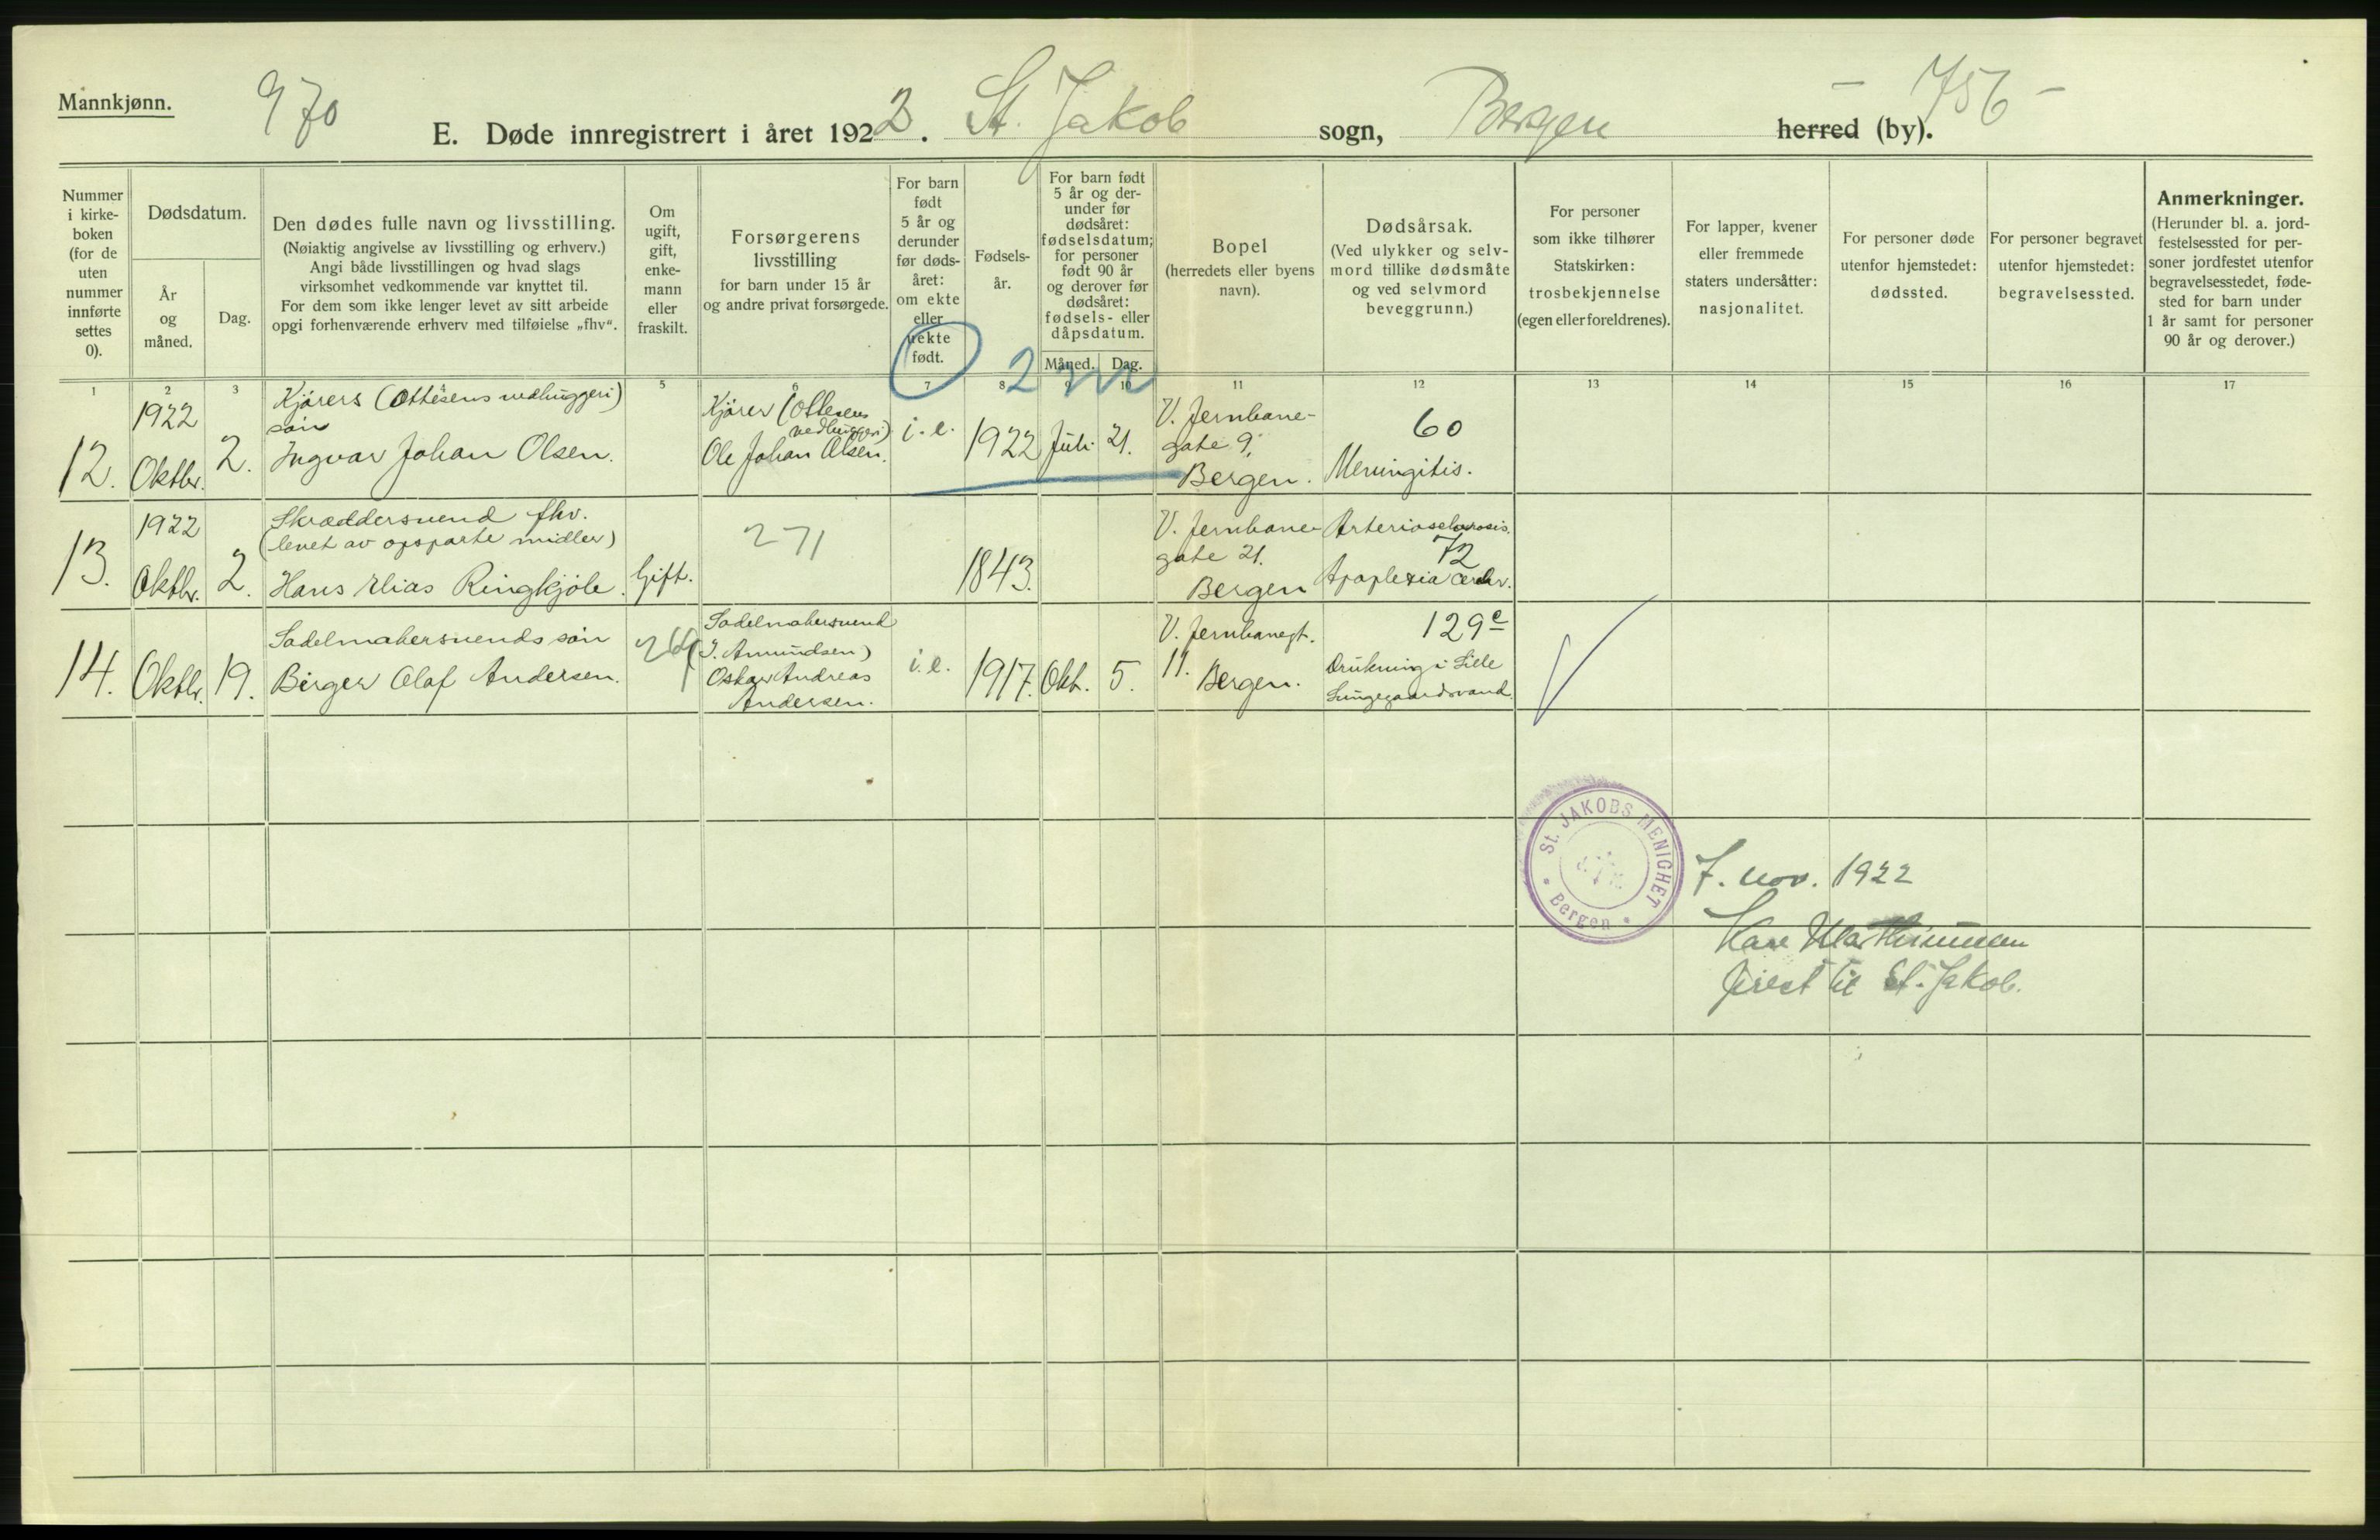 Mannkjønn.
970
- 756 -
E. Døde innregistrert i året 1922. St. Jakob sogn, Bergen herred (by).
Nummer
i kirke-
boken
(for de
uten
nummer
innførte
settes
0).
Dødsdatum.
År
og
måned.
Dag.
Den dødes fulle navn og livsstilling.
(Nøiaktig angivelse av livsstilling og erhverv.)
Angi både livsstillingen og hvad slags
virksomhet vedkommende var knyttet til.
For dem som ikke lenger levet av sitt arbeide
opgi forhenværende erhverv med tilføielse „fhv“.
Om
ugift,
gift,
enke-
mann
eller
fraskilt.
Forsørgerens
livsstilling
for barn under 15 år
og andre privat forsørgede.
For barn
født
5 år og
derunder
før døds-
året:
om ekte
eller
uekte
født.
Fødsels-
år.
For barn født
5 år og der-
under før
dødsåret:
fødselsdatum;
for personer
født 90 år
og derover før
dødsåret:
fødsels- eller
dåpsdatum.
Måned. Dag.
Bopel
(herredets eller byens
navn).
Dødsårsak.
(Ved ulykker og selv-
mord tillike dødsmåte
og ved selvmord
beveggrunn.)
For personer
som ikke tilhører
Statskirken:
trosbekjennelse
(egen eller foreldrenes).
For lapper, kvener
eller fremmede
staters undersåtter:
nasjonalitet.
For personer døde
utenfor hjemstedet:
dødssted.
For personer begravet
utenfor hjemstedet:
begravelsessted.
Anmerkninger.
(Herunder bl. a. jord-
festelsessted for per-
soner jordfestet utenfor
begravelsesstedet, føde-
sted for barn under
1 år samt for personer
90 år og derover.)
1 2 3 5 7 8 9 10 11 12 13 14 15 16 17
2 m
12.
1922
Oktbr.
2.
Kjørers (Ottesens vedhuggeri)
søn
Ingvar Johan Olsen.
Kjører (Ottesens
vedhuggeri)
Ole Johan Olsen.
i.e.
1922
Juli
21.
V. Jernbane-
gate 9,
Bergen.
60
Meningitis.
13.
1922
Oktbr.
2.
Skræddersvend fhv.
(levet av opsparte midler)
Hans Elias Ringkjøb.
Gift.
271
1843.
V. Jernbane-
gate 21.
Bergen
Arteriosclerosis.
72
Apoplexia cerebr.
14.
Oktbr.
19.
Sadelmakersvends søn
Birger Olaf Andersen.
Sadelmakersvend
(J. Amundsen)
Oskar Andreas
Andersen.
i.e.
1917.
Okt.
5.
V. Jernbanegt.
11. Bergen.
129c
Drukning i Lille
Lungegaardsvand.
St. JAKOBS MENIGHET
Bergen
7. nov. 1922
prest til St. Jakob.